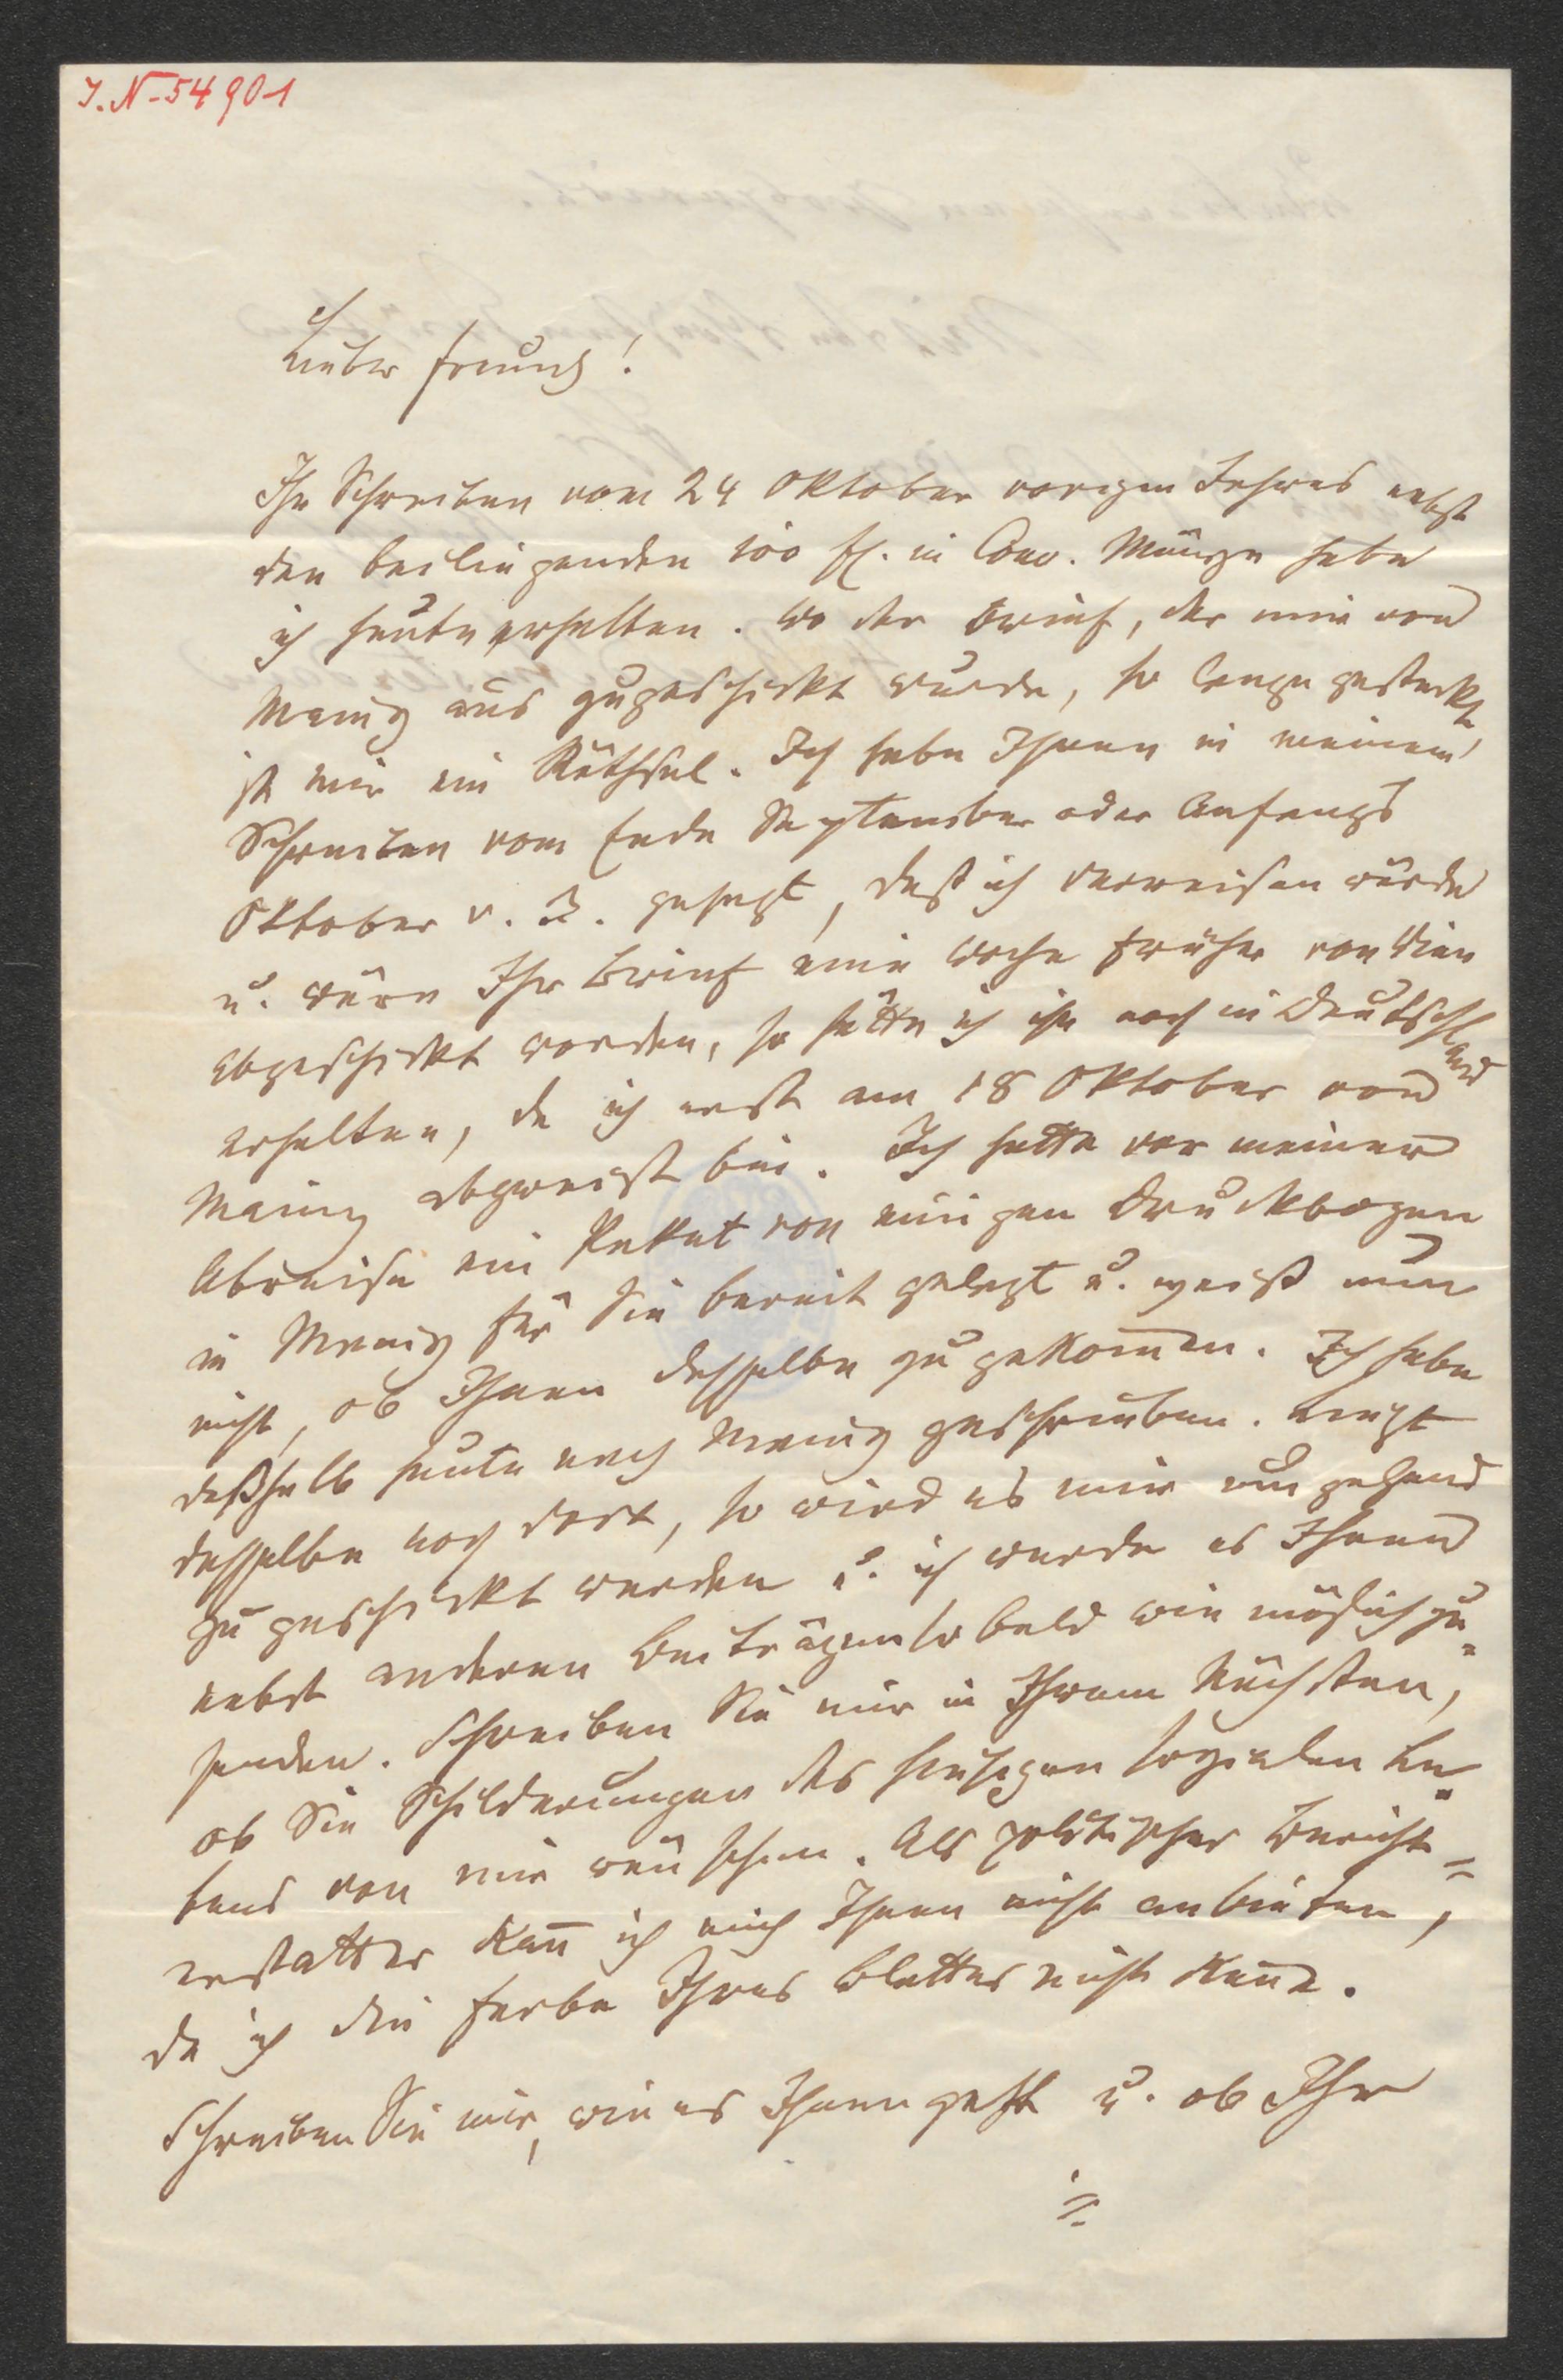 I. N-54901
Lieber Freund!
Ihr Schreiben vom 24 Oktober vorigen Jahres nebst
den beiliegenden 100 fl. in Conv. Münze habe
ich heute erhalten. Wo der Brief, der mir von
Mainz aus zugeschickt wurde, so lange gesteckt,
ist mir ein Räthsel. Ich habe Ihnen in meinem
Schreiben vom Ende September oder Anfangs
Oktober v. J. gesagt, daß ich verreisen würde
u. wäre Ihr Brief eine Woche früher von Wien
abgeschickt worden, so hätte ich ihn noch in Deutschland
erhalten, da ich erst am 18 Oktober von
Mainz abgereist bin. Ich hatte vor meiner
Abreise ein Paket von einigen Druckbogen
in Mainz für Sie bereit gelegt u. weiß nun
nicht, ob Ihnen dasselbe zugekom̄en. Ich habe
deßhalb heute nach Mainz geschrieben. Liegt
dasselbe noch dort, so wird es mir umgehend
zugeschickt werden u. ich werde es Ihnen
nebst anderen Beiträgen so bald wie möglich zu-
senden. Schreiben Sie mir in Ihrem Nächsten,
ob Sie Schilderungen des hiesigen sozialen Le-
bens von mir wünschen. Als politischer Bericht-
erstatter kan̄ ich mich Ihnen nicht anbieten,
da ich die Farbe Ihres Blattes nicht ken̄e.
Schreiben Sie mir, wie es Ihnen geht u. ob Ihr